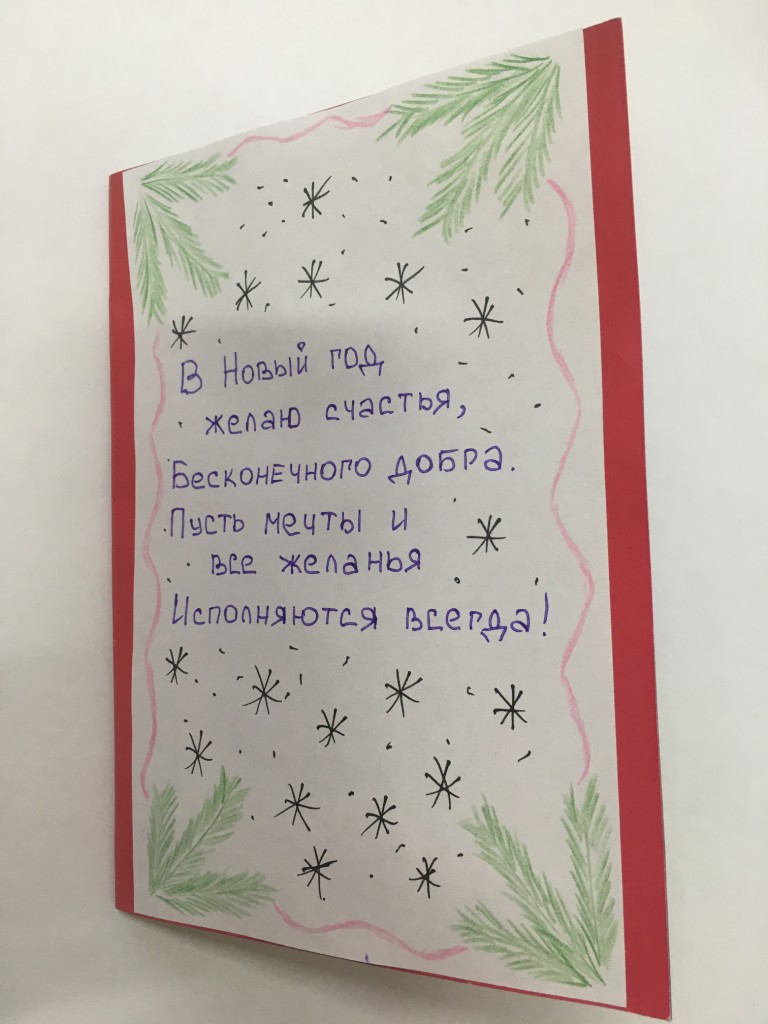 В Новый год
желаю счастья,
Бесконечного добра.
Пусть мечты и
все желанья
Исполняются всегда!